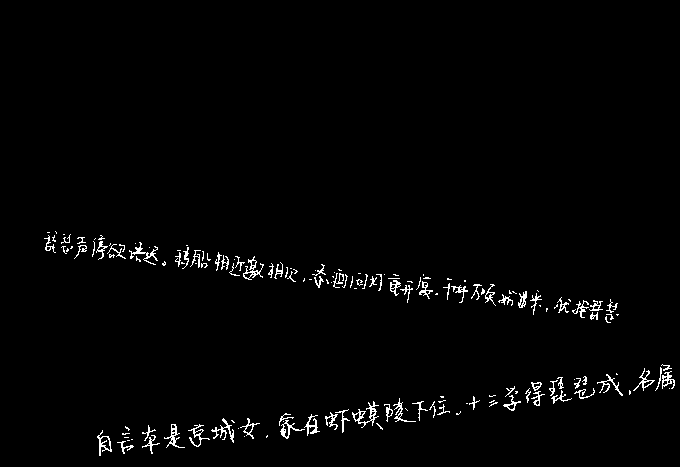 琵琶声停欲语迟。移船相近邀相见,添酒回灯重开宴。千呼万唤始出来,犹抱琵琶
自言本是京城女,家在虾蟆陵下住。十三学得琵琶成,名属